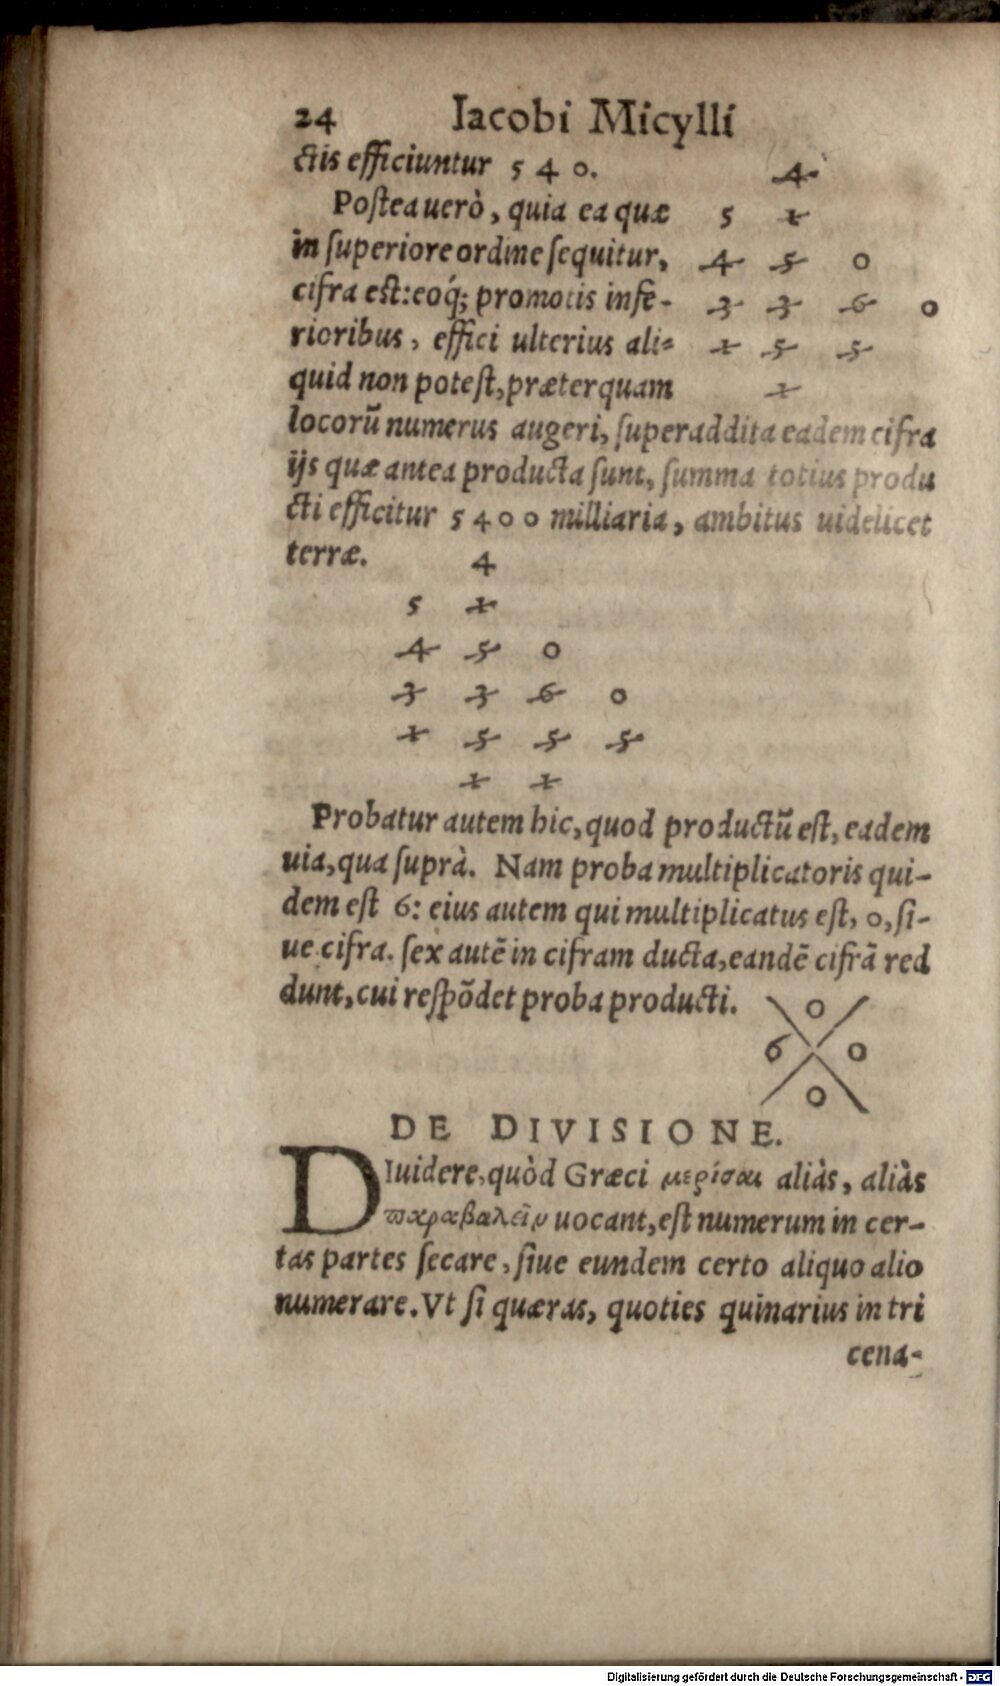 24 Iacobi Micylli
ctis efficiuntur 5 4 0.
4
Postea uerò, quia ea quæ
5 1
in superiore ordine sequitur,
4 5 0
cifra est: eoq́; promotis infe-
3 3 6 0
rioribus, effici ulterius ali=
1 5 5
quid non potest, præterquam
1
locorũ numerus augeri, superaddita eadem cifra
ijs quæ antea producta sunt, summa totius produ
cti efficitur 5 4 0 0 milliaria, ambitus uidelicet
terræ.
4
5 1
4 5 0
3 3 6 0
1 5 5 5
1 1
Probatur autem hic, quod productũ est, eadem
uia, qua suprà. Nam proba multiplicatoris qui-
dem est 6: eius autem qui multiplicatus est, 0, si-
ue cifra. sex autẽ in cifram ducta, eandẽ cifrã red
dunt, cui respõdet proba producti.
0
6 0
0
DE DIVISIONE.
DIuidere, quòd Græci μερίσαι aliàs, aliàs
ϖαραβαλεῖν uocant, est numerum in cer-
tas partes secare, siue eundem certo aliquo alio
numerare. Vt si quæras, quoties quinarius in tri
cena-
Digitalisierung gefördert durch die Deutsche Forschungsgemeinschaft - DFG